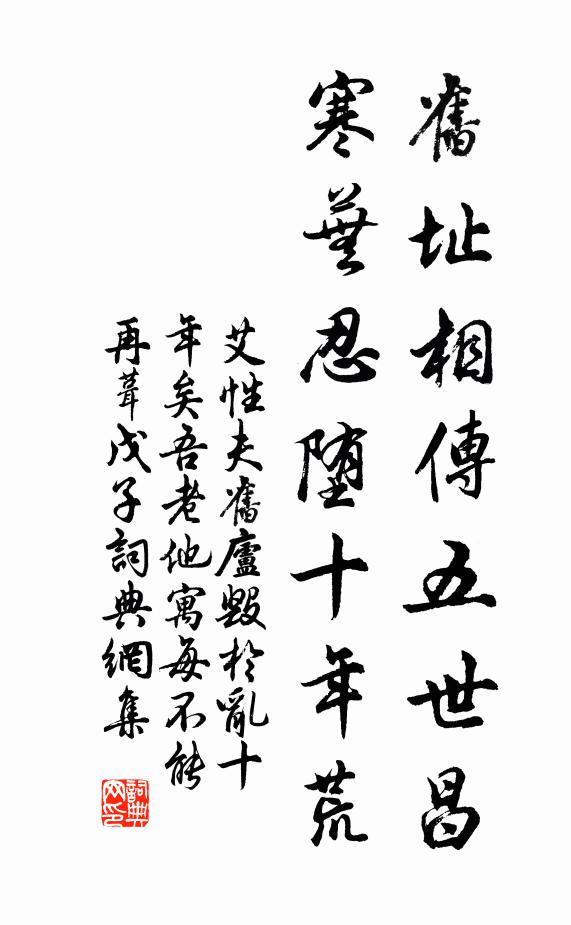 舊址相傳五世昌
寒蕪忍墮十年荒
艾性夫舊廬毀於亂十
年矣吾老他寓每不能
再葺戊子詞典網集
詞典網印